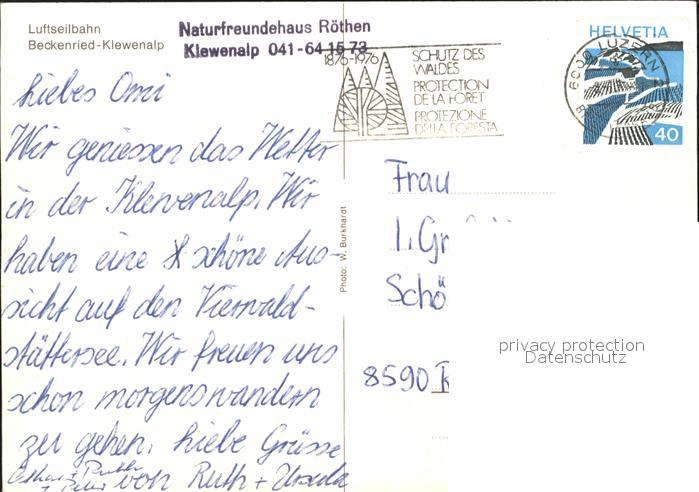 Luftseilbahn
Beckenried-Klewenalp
Naturfreundehaus Röthen
Klewenalp 041-64 15 73
1876-1976
SCHUTZ DES
WALDES
PROTECTION
DE LA FORET
PROTEZIONE
DELLA FORESTA
6000 LUZERN
HELVETIA
40
Liebes Omi
Wir geniessen das Wetter
in der Klewenalp. Wir
haben eine schöne Aus-
sicht auf den Vierwald-
stättersee. Wir freuen uns
schon morgens wandern
zu gehen. Liebe Grüsse
von Ruth + Ursula
Photo: W. Burkhardt
Frau
1. Gr
Schö
8590 R
privacy protection
Datenschutz